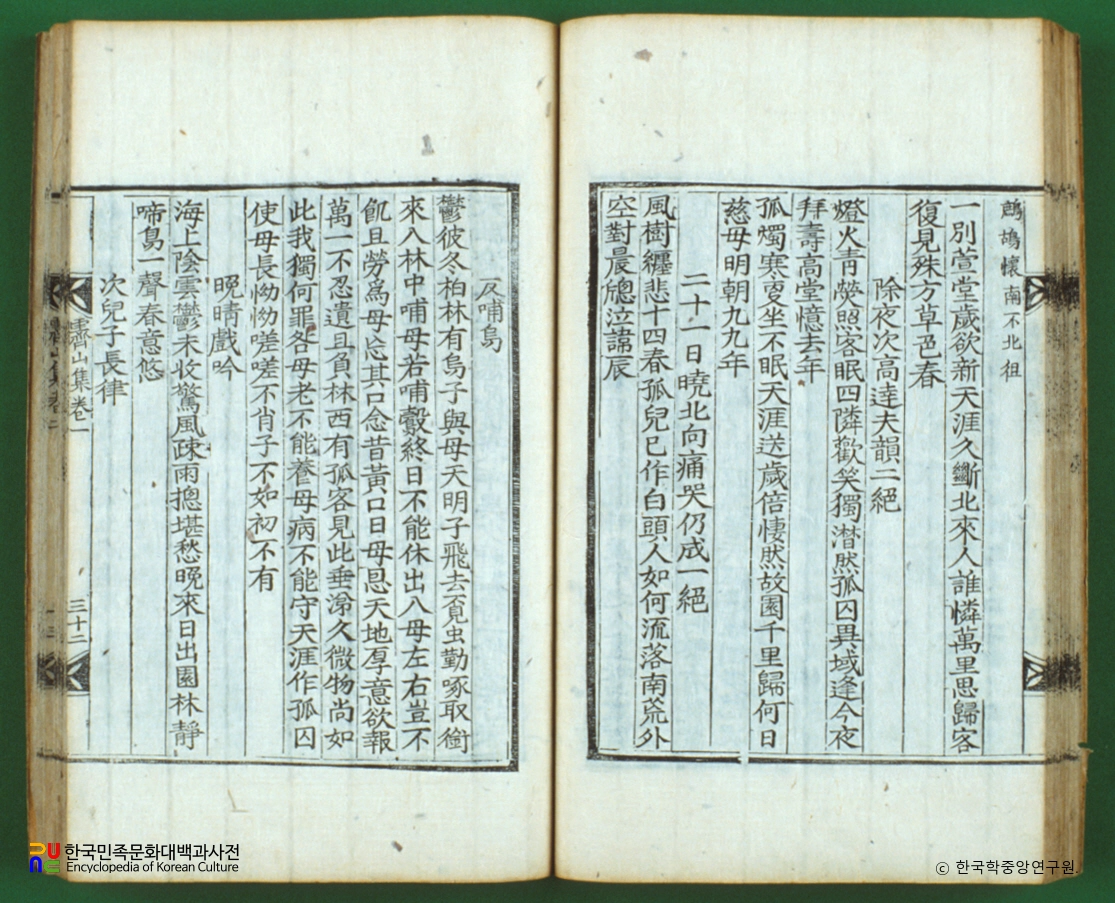 鷓鴣懷南不北徂
一別萱堂歲欲新天涯久斷北來人誰憐萬里思歸客
復見殊方草色春
除夜次高達夫韻二絕
燈火靑熒照客眠四隣歡笑獨潸然孤囚異域逢今夜
拜壽高堂憶去年
孤燭寒更坐不眠天涯送歲倍悽然故園千里歸何日
慈母明朝九九年
二十一日曉北向痛哭仍成一絕
風樹纏悲十四春孤兒已作白頭人如何流落南荒外
空對晨牕泣諱辰
反哺烏
鬱彼冬柏林有烏子與母天明子飛去覓虫勤啄取銜
來入林中哺母若哺鷇終日不能休出入母左右豈不
飢且勞爲母忘其口念昔黃口日母恩天地厚意欲報
萬一不忍遺且負林西有孤客見此垂淚久微物尙如
此我獨何罪咎母老不能養母病不能守天涯作孤囚
使母長怮怮嗟嗟不肖子不如初不有
晩晴戲吟
海上陰雲鬱未收驚風疎雨摠堪愁晩來日出園林靜
啼鳥一聲春意悠
次兒子長律
霽山集卷一
三十二
한국민족문화대백과사전
Encyclopedia of Korean Culture
ⓒ 한국학중앙연구원